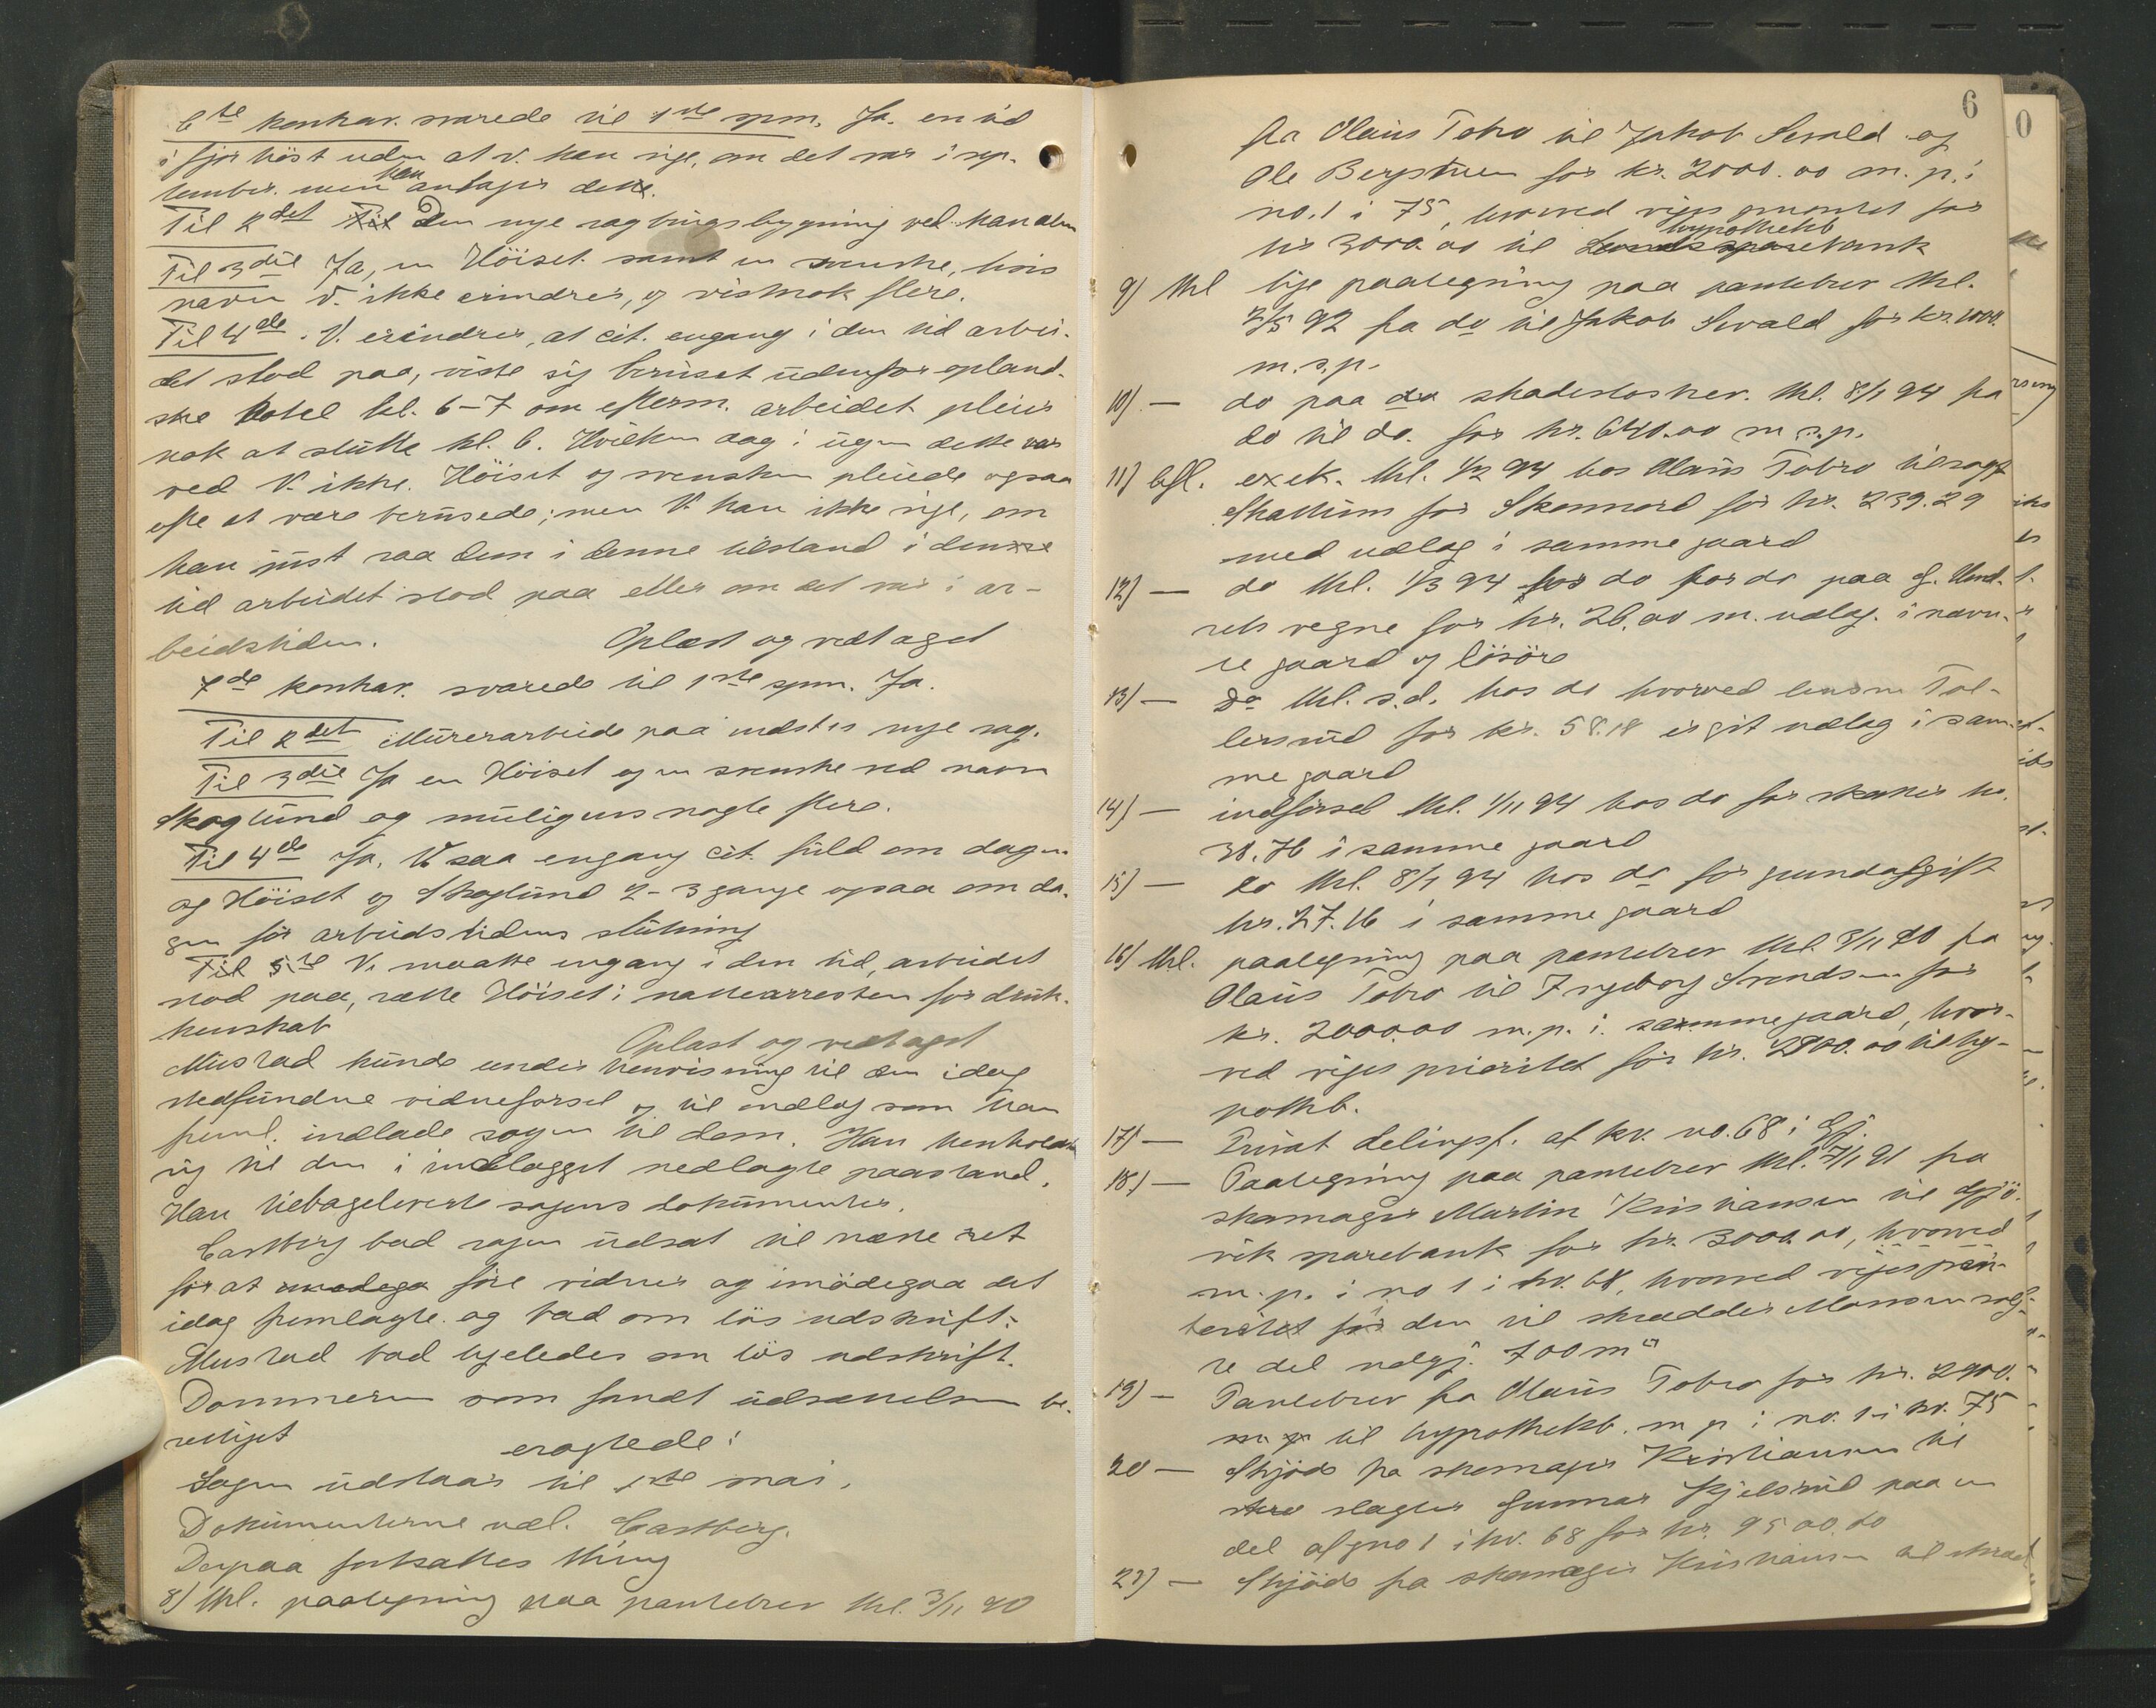 6te kontrav. svarede til 1ste spm. Ja. en tid
i fjor høst uden at V. kan sige, om det var i sep-
tember. men han antager dette.
Til 2det Til Den nye sagbrugsbygning ved
Til 3die Ja, en Höiset samt en svenske, hvis
navn V. ikke erindrer, og vistnok flere.
Til 4de. V. erindrer, at cit. engang i den tid arbei-
det stod paa, viste sig beruset udenfor opland-
ske hotel kl. 6-7 om efterm. arbeidet pleier
nok at slutte kl. 6. Hvilken dag i ugen dette var
ved V. ikke. Höiset og svensken pleiede ogsaa
ofte at være berusede; men V. kan ikke sige, om
han just saa dem i denne tilstand i den
tid arbeidet stod paa eller om det var i ar-
beidstiden. Oplæst og vedtaget
7de kontrav. svarede til 1ste spm. Ja.
Til 2det Murerarbeide paa nye sag.
Til 3die Ja en Höiset og en svenske ved navn
Skoglund og muligens nogle flere.
Til 4de Ja. V. saa engang cit. fuld om dagen
og Höiset og Skoglund 2-3 gange ogsaa om da-
gen før arbeidstidens slutning
Til 5te V. maatte engang i den tid, arbeidet
stod paa, sætte Höiset i nattearresten for druk-
kenskab Oplæst og vedtaget
Mustad kunde under henvisning til den idag
stedfundne vidneførsel og til indlæg som han
freml. indlade sagen til dom. Han henholdt
sig til den i indlægget nedlagte paastand.
Han tilbageleverte sagens dokumenter.
Castberg bad sagen udsat til næste ret
for at føre vidner og imødegaa det
idag fremlagte og bad om løs udskrift.
Mustad bad ligeledes om løs udskrift.
Dommeren som fandt udsættelsen be-
rettiget eragtede:
Sagen udstaar til 1ste mai.
Dokumenterne udl. Castberg.
Derpaa fortsattes thing
8) thl. paategning paa pantebrev thl. 3/11 90
6
fra Olaus Tobro til Jakob Sevald og
Ole Bergstuen for kr. 2000.00 m. p. i
no. 1 i 75, hvorved viges prioritet for
kr 3000.00 til hypothekb
9) thl lige paategning paa pantebrev thl.
2/5 92 fra do til Jakob Sevald for kr. 1000.
m. s. p.
10) — do paa do skadesløsbrev. thl. 8/1 94 fra
do til do. for kr. 640.00 m s. p.
11) afl. exek. thl. 1/2 94 hos Olaus Tobro
for for kr. 239.29
med udlæg i samme gaard
12) — do thl. 1/3 94 hos do for do paa
rets vegne for kr. 26.00 m. udlæg i nævn-
te gaard og løsøre
13) — Do thl. s.d. hos do hvorved lensm Tol-
lersrud for kr. 58.18 er git udlæg i sam-
me gaard
14) — indførsel thl. 1/11 94 hos do for skatter kr.
30.76 i samme gaard
15) — do thl. 8/1 94 hos do for grundafgift
kr. 27.16 i samme gaard
16) thl. paategning paa pantebrev thl 3/11 90 fra
Olaus Tobro til Ingeborg Svendsen for
kr. 2000.00 m. p. i. samme gaard, hvor-
ved viges prioritet for kr. 2900.00 til hy-
pothb.
17) — Privat delingsf. af kv. no. 68 i Gj.
18) — Paategning paa pantebrev thl. 7/1 91 fra
skomager Martin Kristiansen til Gjö-
vik sparebank for kr. 3000.00, hvorved
m. p. i no 1 i kv. 68, hvorved viges prio-
den til skrædder Monsen solg-
te del udgj. 700 m□
19) — Pantebrev fra Olaus Tobro for kr. 2900.
til hypothekb. m p i no. 1 i kv. 75
20 — Skjøde fra skomager Kristiansen til
slagter Gunnar Kjelsrud paa en
del af no 1 i kv. 68 for kr. 9500.00
21) — Skjøde fra skomager Kristiansen til
0